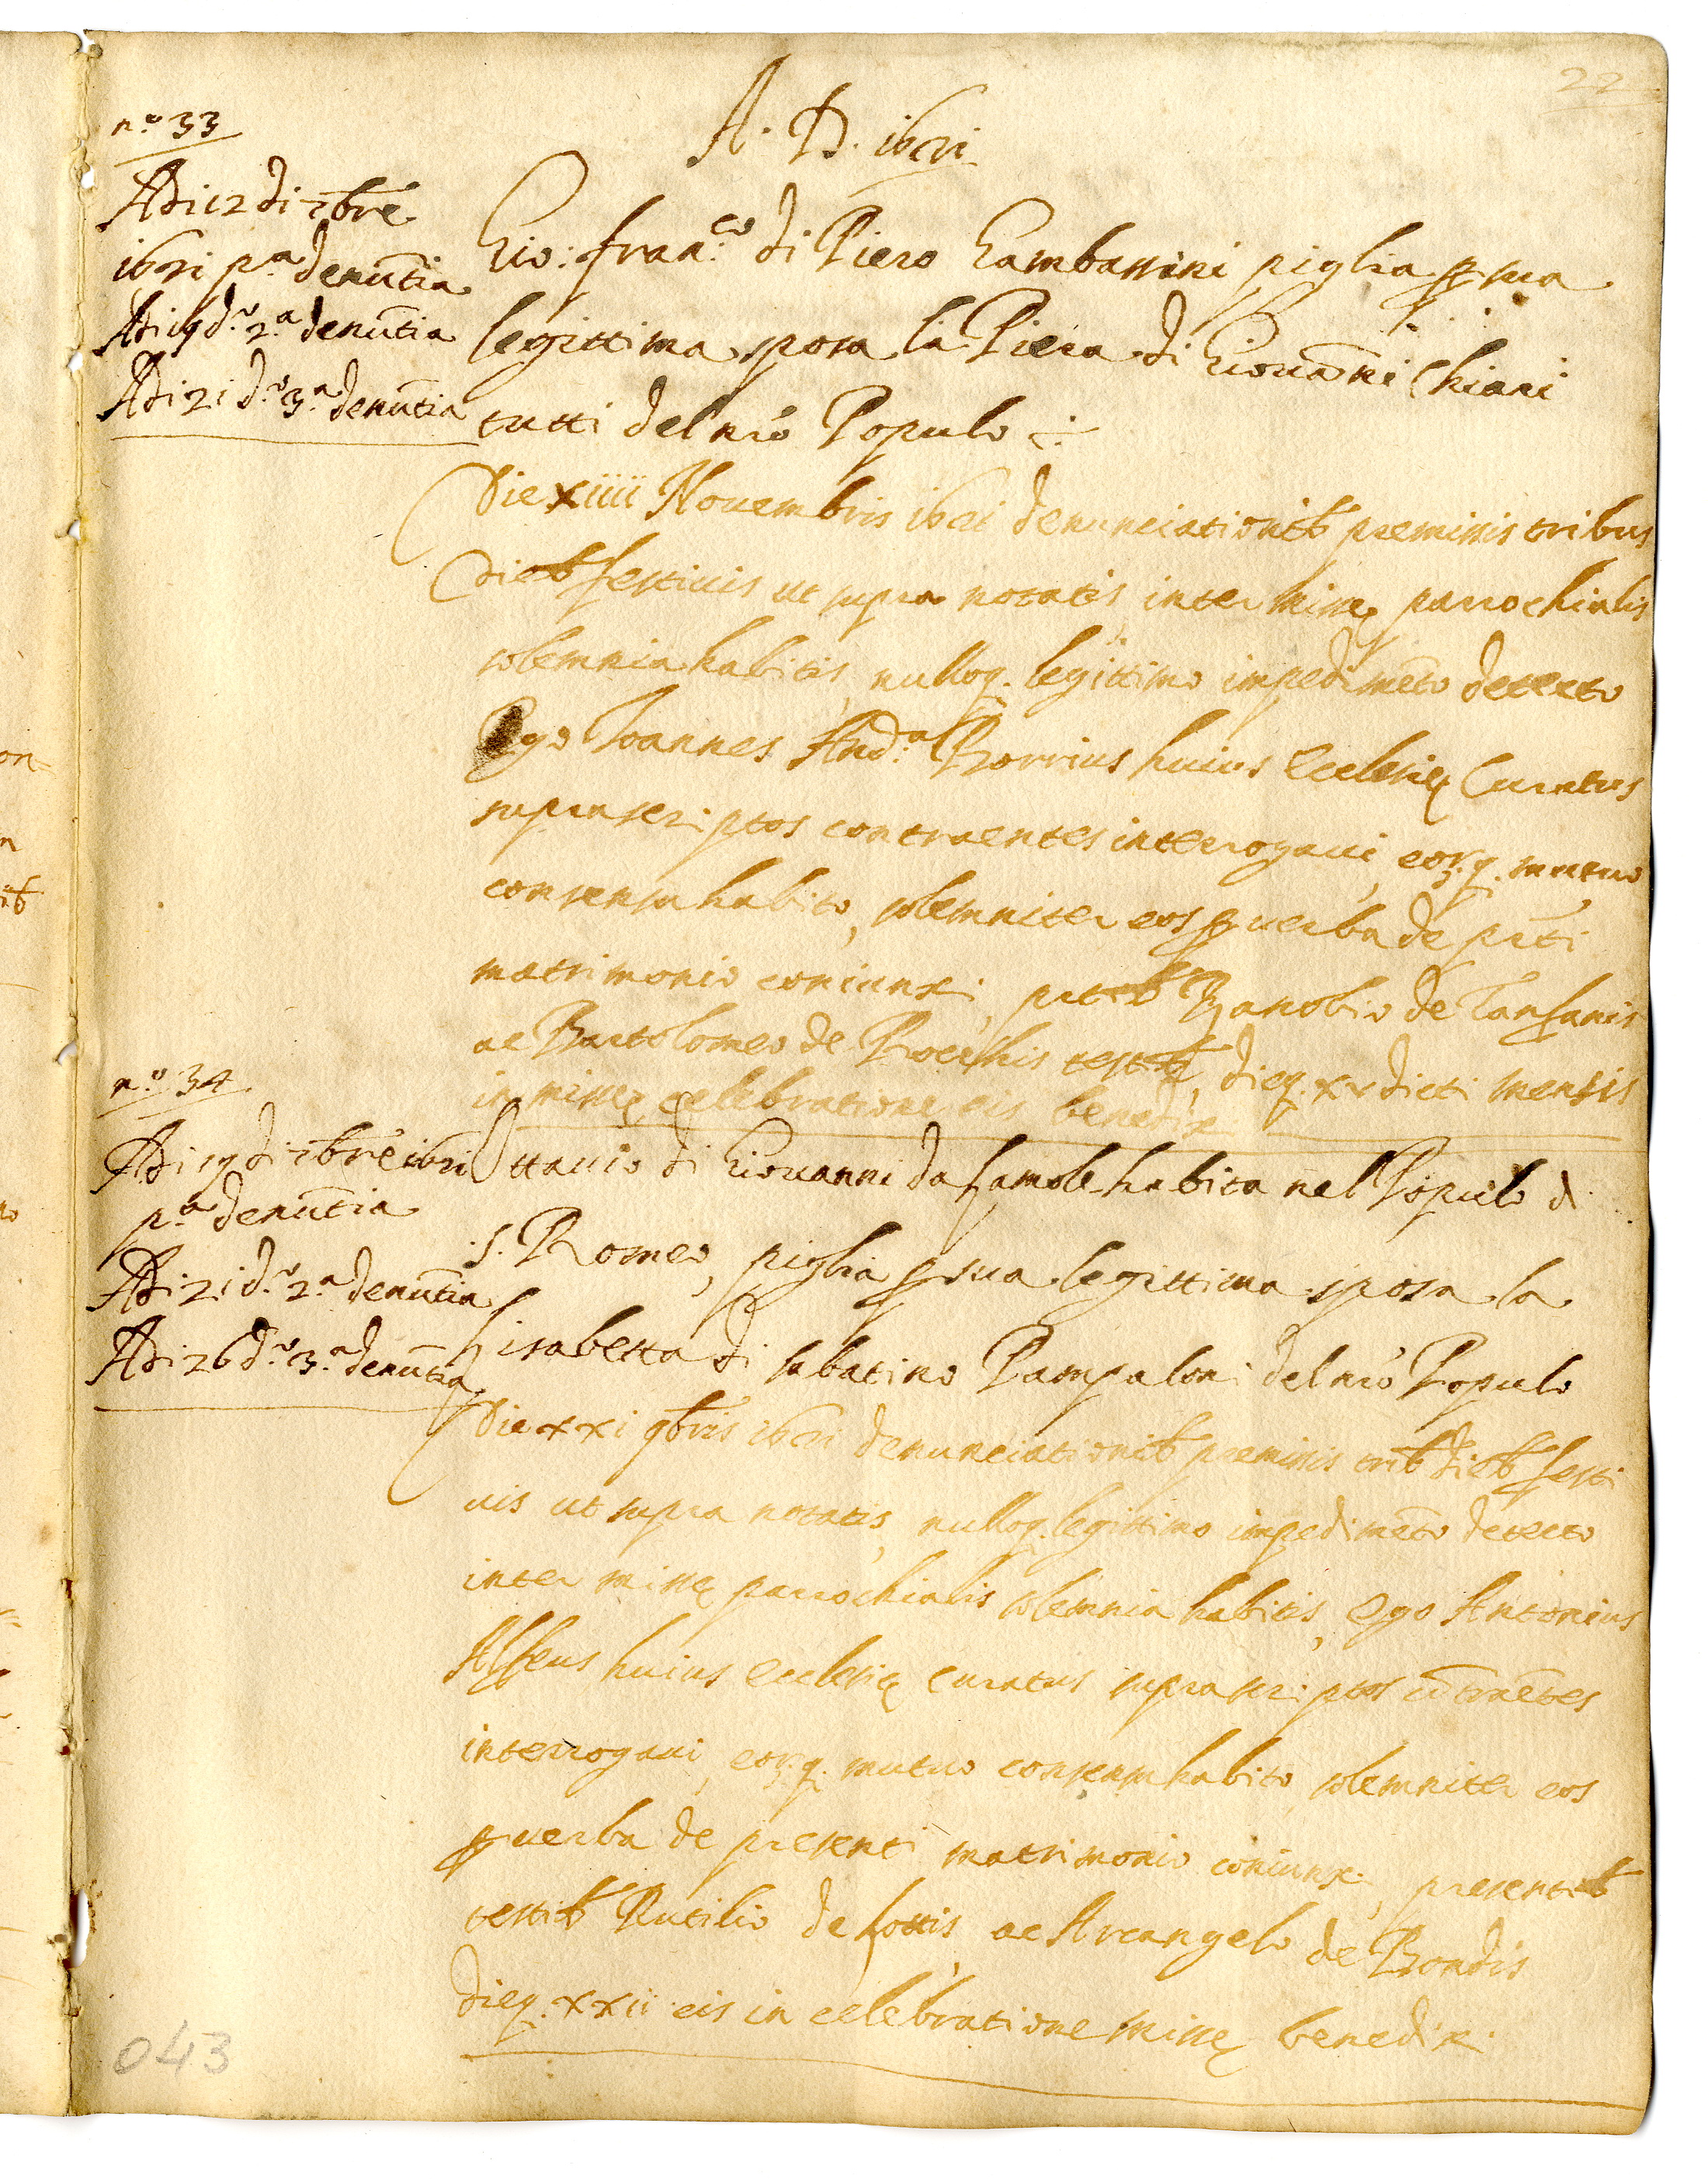 22
A. D. 1621
n.o 33
Adi 12 di 7bre
1621 p.a denũtia
Adi 19 d.o 2.a denũtia
Adi 21 d.o 3.a denũtia
Gio: Fran.co di Piero Gambassini piglia p sua
legittima sposa la Piera di Giouãni Chiari
tutti del nr̃o Populo
Die xiiii Nouembris 1621 denunciationib premissis tribus
dieb festiuis ut supra notatis, inter missę parrochialis
solemnia habitis, nulloq. legittimo impedimẽto detecto
Ego Joannes And.a Borrius huius Ecclesię Curatus
suprascriptos contraentes interrogaui, eorq. mutuo
consensu habito, solemniter eos p uerba de pñti
matrimonio coniunxi, pñtib Zanobio de
ac Bartolomeo de testib, dieq. xv dicti mensis
in missę celebratione eis benedixi
n.o 34
Adi 19 di 7bre 1621
p.a denũtia
Adi 21 d.o 2.a denũtia
Adi 26 d.o 3.a denũtia
Ottauio di Giouanni da Lamole habita nel Populo di
S. Romeo, piglia p sua legittima sposa la
Lisabetta di Sabatino Pampaloni del nr̃o Populo
Die xxi 9bris 1621 denunciationib premissis trib dieb festi
uis ut supra notatis, nulloq. legittimo impedimẽto detecto
inter missę parrochialis solemnia habitis, ego Antonius
Alfeus huius ecclesię curatus suprascriptos cõtraẽtes
interrogaui, eorq. mutuo consensu habito, solemniter eos
p uerba de presenti matrimonio coniunxi, presentib
testib Rutilio de Lottis ac Arcangelo de Bondis
dieq. xxii eis in celebratione missę benedixi
043